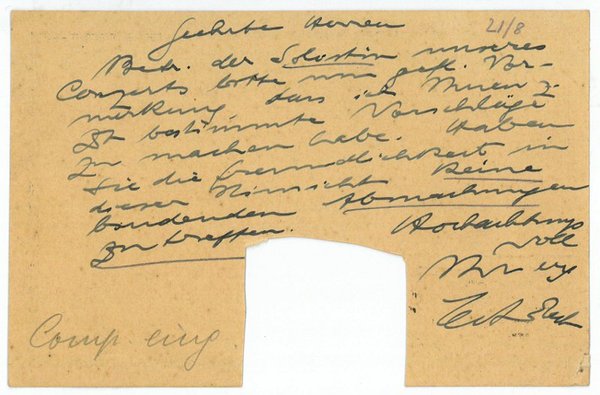 21/8
Geehrte Herren
Betr. der Solostin unseres
Conzerts bitte um gefl. Vor-
merkung dass ich Ihnen z.
Zt bestimmte Vorschläge
zu machen habe. Haben
Sie die Freundlichkeit in
dieser Hinsicht keine
bindenden Abmachungen
zu treffen.
Hochachtungs
voll
Ihr erg
Comp. eing